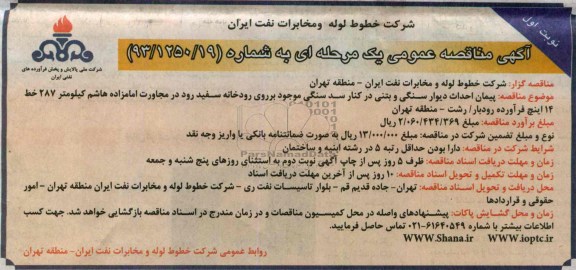 شرکت خطوط لوله ومخابرات نفت ایران
نوبت اول
آگهی مناقصه عمومی یک مرحله ای به شماره (۹۳/۱۲۵۰/۱۹)
شرکت ملی پالایش و پخش فرآورده های نفتی ایران
مناقصه گزار: شرکت خطوط لوله و مخابرات نفت ایران - منطقه تهران
موضوع مناقصه: پیمان احداث دیوار سنگی و بتنی در کنار سد سنگی موجود برروی رودخانه سفید رود در مجاورت امامزاده هاشم کیلومتر ۲۸۷ خط
۱۴ اینچ فرآورده رودبار/ رشت - منطقه تهران
مبلغ برآورد مناقصه: مبلغ ۲/۰۶۰/۴۳۴/۳۶۹ ریال
نوع و مبلغ تضمین شرکت در مناقصه: مبلغ ۱۳/۰۰۰/۰۰۰ ریال به صورت ضمانتنامه بانکی یا واریز وجه نقد
شرایط شرکت در مناقصه: دارا بودن حداقل رتبه ۵ در رشته ابنیه و ساختمان
زمان و مهلت دریافت اسناد مناقصه: ظرف ۵ روز پس از چاپ آگهی نوبت دوم به استثنای روزهای پنج شنبه و جمعه
زمان و مهلت تکمیل و تحویل اسناد مناقصه: ۱۰ روز پس از آخرین مهلت دریافت اسناد
محل دریافت و تحویل اسناد مناقصه: تهران- جاده قدیم قم - بلوار تاسیسات نفت ری - شرکت خطوط لوله و مخابرات نفت ایران منطقه تهران- امور
حقوقی و قراردادها
زمان و محل گشایش پاکات: پیشنهادهای واصله در محل کمیسیون مناقصات و در زمان مندرج در اسناد مناقصه بازگشایی خواهد شد. جهت کسب
اطلاعات بیشتر با شماره ۶۱۶۴۰۵۴۹-۰۲۱ تماس حاصل فرمایید.
WWW.Shana.ir WWW.ioptc.ir
روابط عمومی شرکت خطوط لوله و مخابرات نفت ایران- منطقه تهران